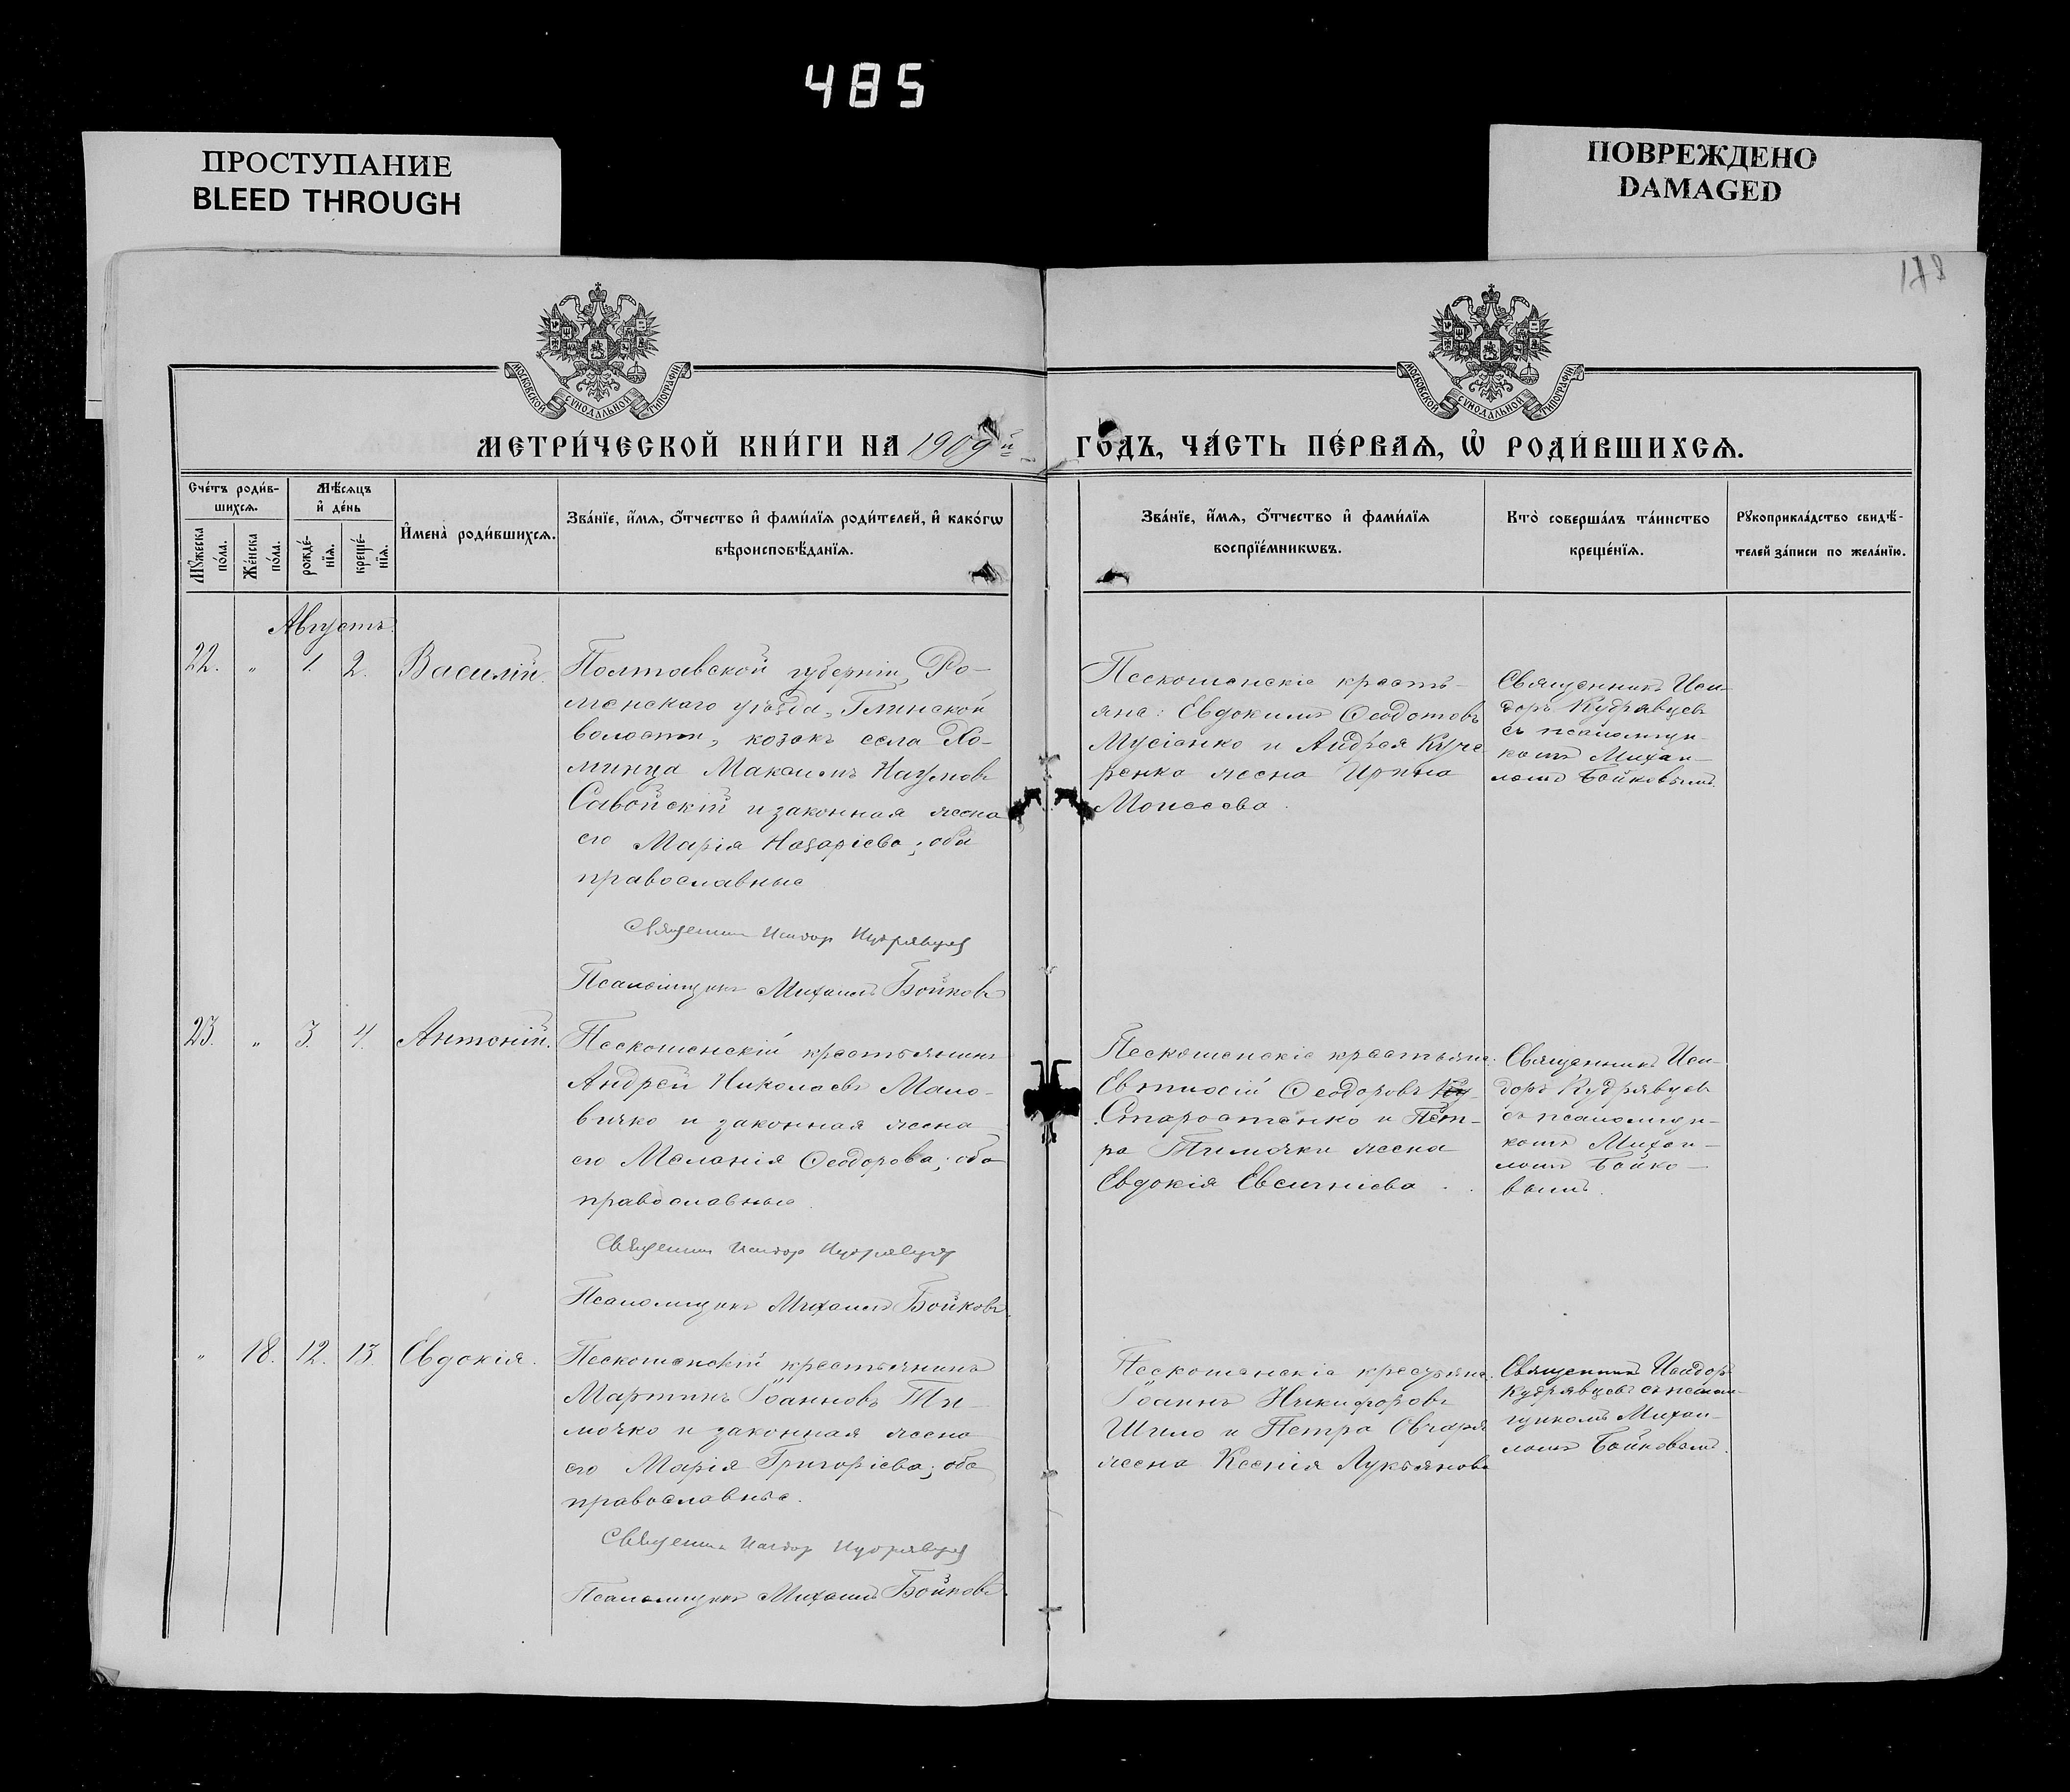 485
ПРОСТУПАНИЕ
BLEED THROUGH
ПОВРЕЖДЕНО
DAMAGED
178
МОСКОВСКОЙ СѴНОДАЛЬНОЙ ТИПОГРАФІИ
МОСКОВСКОЙ СѴНОДАЛЬНОЙ ТИПОГРАФІИ
МЕТРИ́ЧЕСКОЙ КНИ́ГИ НА 1909й
ГО́ДЪ, ЧА́СТЬ ПЕ́РВАѦ, Ѡ҆ РОДИ́ВШИХСѦ.
Сче́тъ роди́в-
шихсѧ.
Мꙋ́жеска
по́ла.
Же́нска
по́ла.
Мѣ́сѧцъ
и҆ де́нь
рожде́-
нїѧ.
креще́-
нїѧ.
И҆мена̀ роди́вшихсѧ.
Зва́нїе, и҆́мѧ, ѻ҆́тчество и҆ фами́лїѧ роди́телей, и҆ како́гѡ
вѣроисповѣ́данїѧ.
Зва́нїе, и҆́мѧ, ѻ҆́тчество и҆ фами́лїѧ
воспрїе́мникѡвъ.
Кто̀ соверша́лъ та́инство
креще́нїѧ.
Рꙋкоприкла́дство свидѣ́-
телей за́писи по жела́нїю.
Августъ.
22. „ 1. 2. Василій.
Полтавской губерніи, Ро-
менскаго уѣзда, Глинской
волости, козакъ села Хо-
минца Максимъ Наумовъ
Савойскій и законная жена
его Марія Назаріева; оба
православные
Священник Исидор Кудрявцев
Псаломщикъ Михаилъ Бойковъ
Пескошенскіе кресть-
яне: Евдокимъ Ѳеодотовъ
Мусіенко и Андрея Куче-
ренка жена Ирина
Моисеева.
Священникъ Иси-
доръ Кудрявцевъ
съ псаломщи-
комъ Михаи-
ломъ Бойковымъ.
23. „ 3. 4. Антоній.
Пескошенскій крестьянинъ
Андрей Николаевъ Мало-
вичко и законная жена
его Меланія Ѳеодорова; оба
православные.
Священник Исидор Кудрявцев
Псаломщикъ Михаилъ Бойковъ.
Пескошенскіе крестьяне:
Евтихій Ѳеодоровъ
Старостенко и Пет-
ра Тимочки жена
Евдокія Евсигніева.
Священникъ Иси-
доръ Кудрявцевъ
съ псаломщи-
комъ Михаи-
ломъ Бойко-
вымъ.
„ 18. 12. 13. Евдокія.
Пескошенскій крестьянинъ
Мартинъ Іоанновъ Ти-
мочко и законная жена
его Марія Григоріева; оба
православные.
Священник Исидор Кудрявцев
Псаломщикъ Михаилъ Бойковъ.
Пескошенскіе крестьяне:
Іоаннъ Никифоровъ
Шило и Петра Овчаря
жена Ксенія Лукьянова
Священникъ Исидоръ
Кудрявцевъ съ псалом-
щикомъ Михаи-
ломъ Бойковымъ.